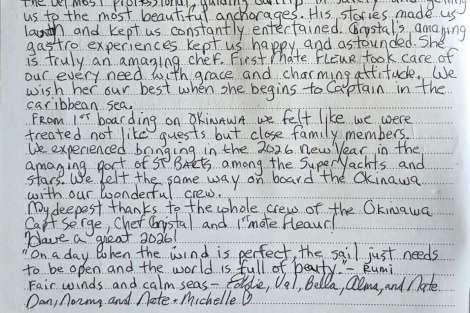 the ut most professional, guiding our trip in safety and getting
us to the most beautiful anchorages. His stories made us
laugh and kept us constantly entertained. Crystal's amazing
gastro experiences kept us happy and astounded. She
is truly an amazing chef. First mate Fleur took care of
our every need with grace and charming attitude. We
wish her our best when she begins to Captain in the
caribbean sea.
From 1st boarding on OKINAWA we felt like we were
treated not like guests but close family members.
We experienced bringing in the 2026 New Year in the
amazing port of ST BARTS among the Super Yachts and
stars. We felt the same way on board the Okinawa
with our wonderful crew.
My deepest thanks to the whole crew of the Okinawa
Capt Serge, Chef Crystal and 1st mate Fleur!
Have a great 2026!
"On a day when the wind is perfect, the sail just needs
to be open and the world is full of beauty." - Rumi
Fair winds and calm seas - Eddie, Val, Bella, Alma, and Nate
Dan, Norma, and Nate + Michelle